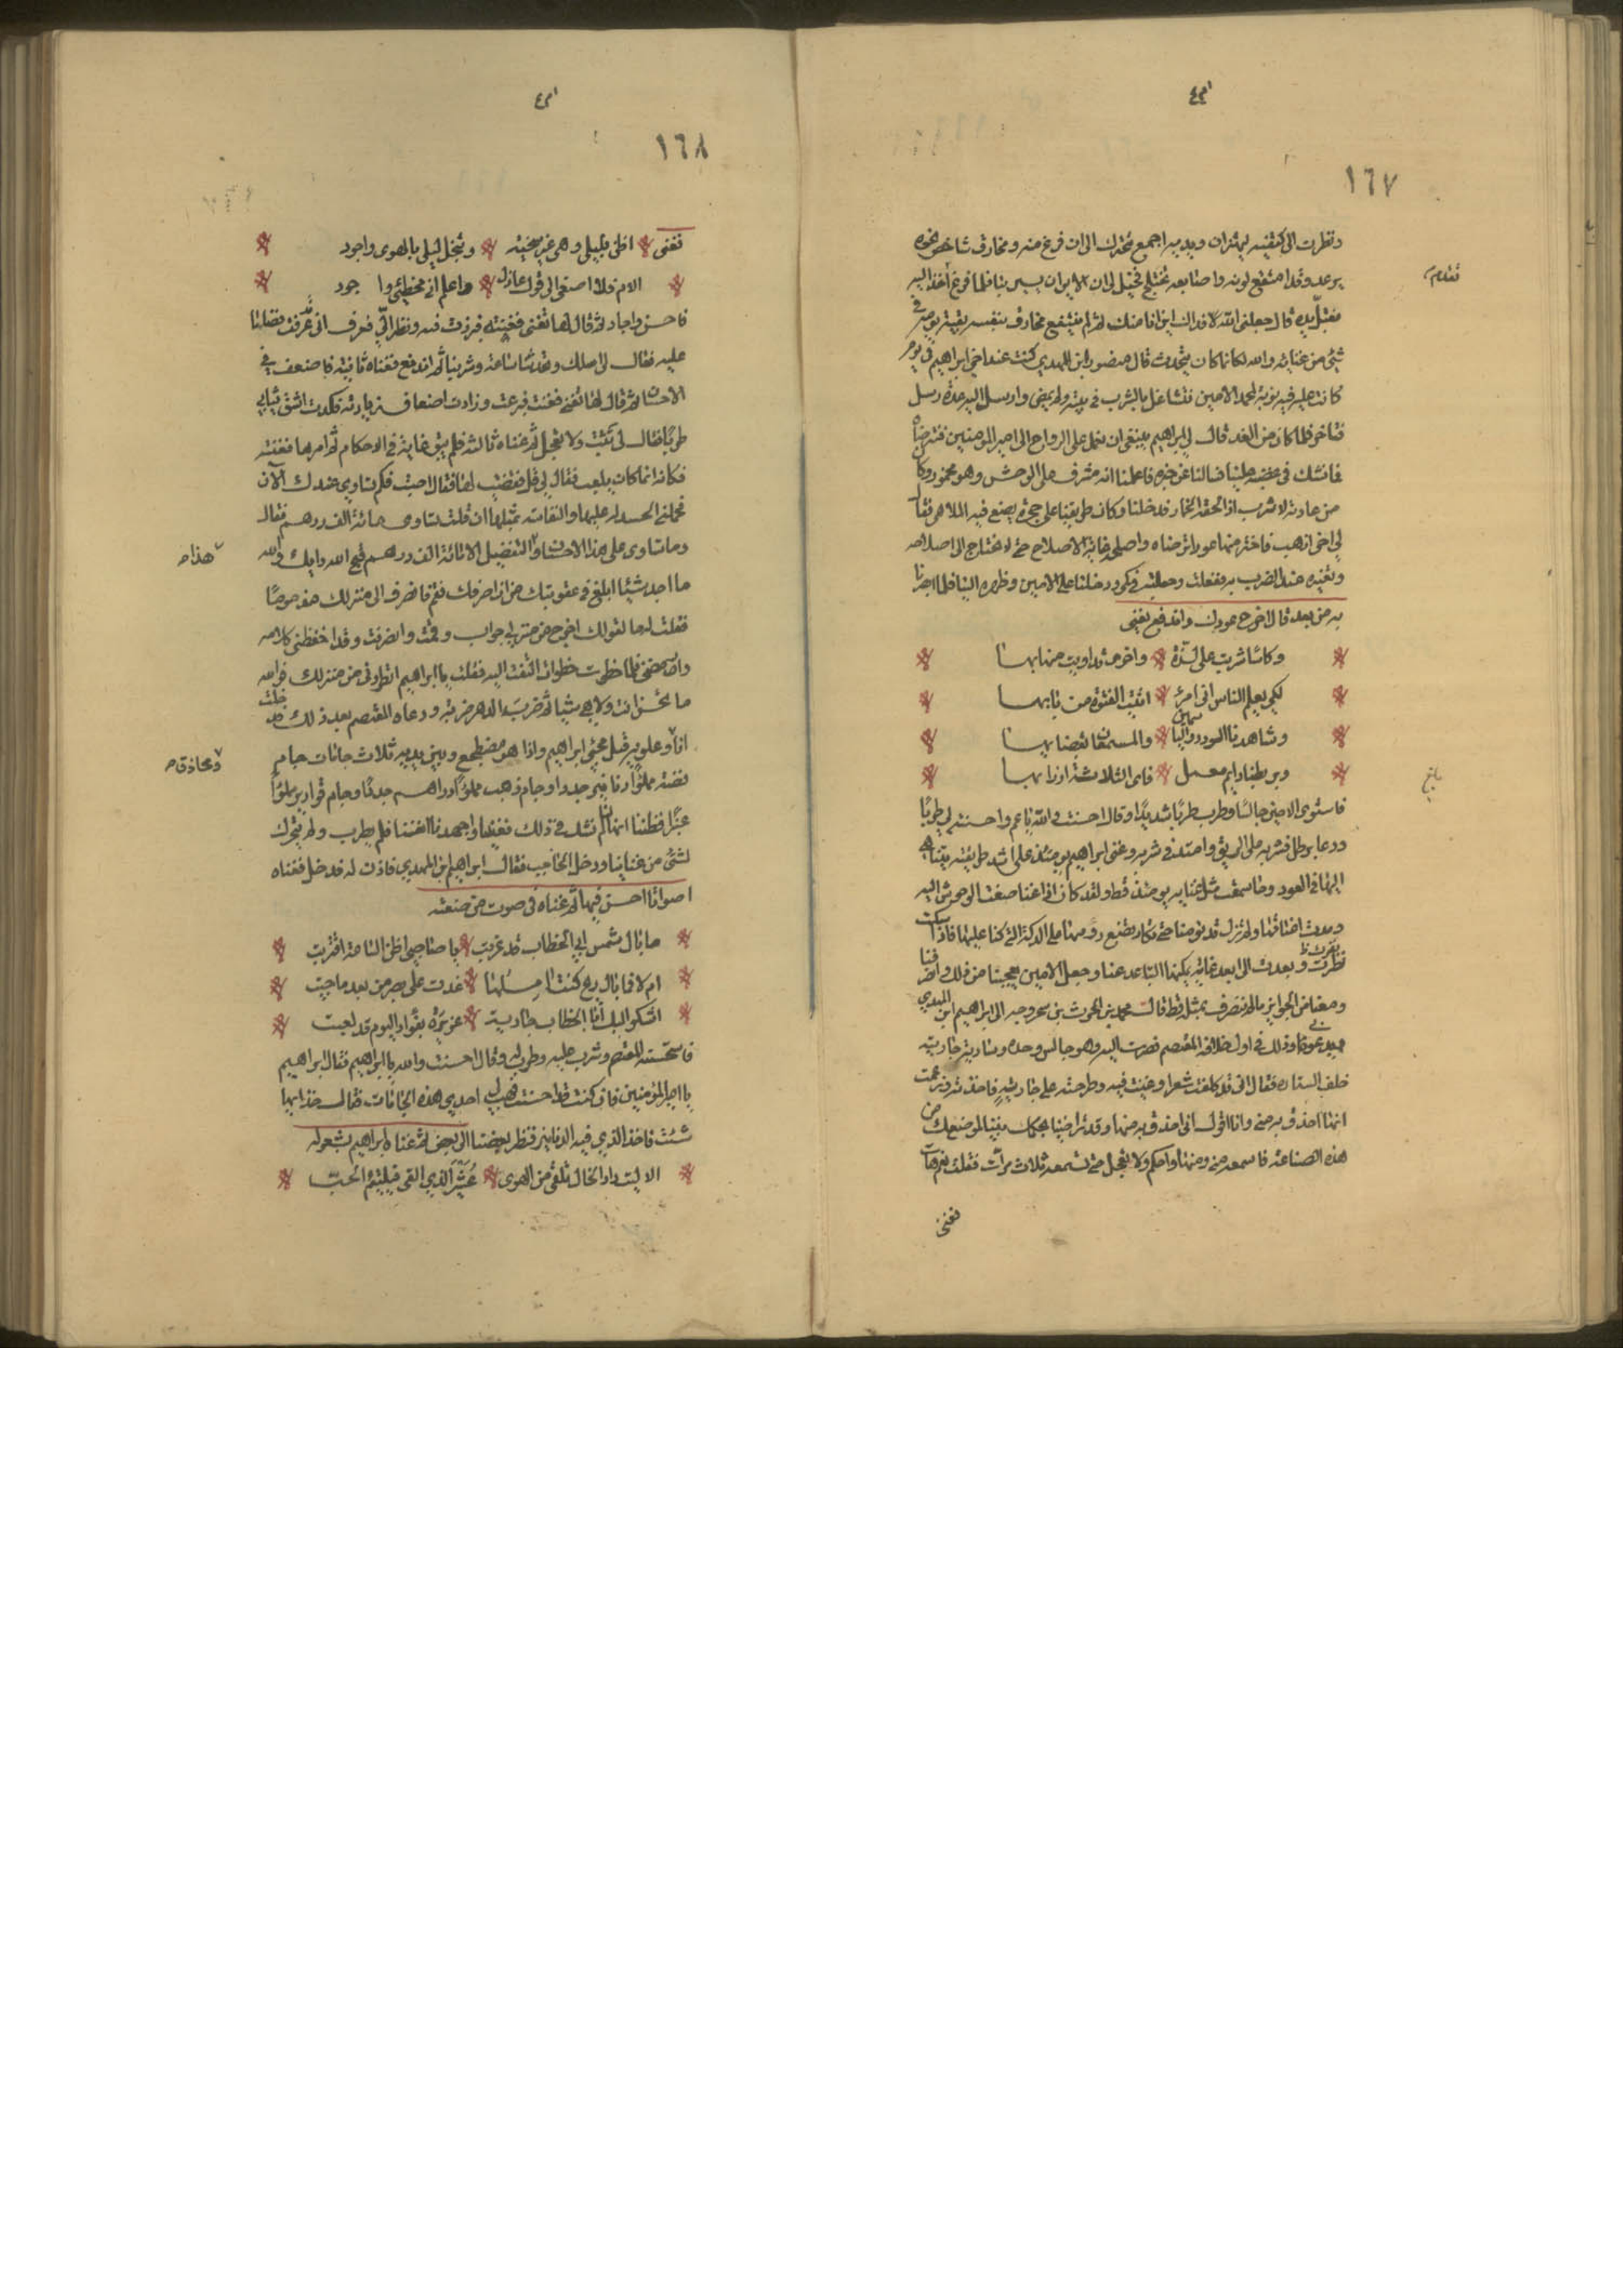 ١٦٧
ونظرت الى كتفيه يهتزان وبدنه اجمع يتحرك الى ان فرغ منه ومخارق شاخص نحوه
يرعد وقد امتقع لونه واصابعه تختلج فخيل لي ان الايوان يسير بنا فلما فرغ تقدم اليه
فقبل يده قال جعلني الله فداك اين انا منك ثم لم ينتفع مخارق بنفسه بقية يومه في
شيء من غنائه والله لكانما كان يتحدث قال منصور ابن المهدي كنت عند اخي ابراهيم في يوم
كانت عليه فيه نوبة لمحمد الامين فتشاغل بالشرب في بيته ولم يمض وارسل اليه عدة رسل
فتاخر فلما كان من الغد قال لي ابراهيم ينبغي ان نعمل على الرواح الى امير المومنين فنترضاه
فما نشك في غضبه علينا فسالنا عن خبره فاعلمنا انه مشرف على الوحش وهو مخمور وكان
من عادته لا يشرب اذا لحقه الخمار فدخلنا وكان طريقنا على حجرة يصنع فيه الملاهي فقال
لي اخي اذهب فاختر منها عودا ترضاه واصلحه غاية الاصلاح حتى لا تحتاج الى اصلاحه
وتغيره عند الضرب به ففعلت وجعلته في كمي ودخلنا على الامين وظهره الينا فلما ابصرنا
به من بعد قال اخرج عودك واندفع يغني
وكاسا شربت على لذة واخرى تداويت منها بها
لكي يعلم الناس اني امرؤ اتيت الفتوة من بابها
وشاهدنا الورد والياسمين والمسمعات بقصابها
وبربطنا دايم معمل فاي الثلاثة ازرى بها
فاستوى الامين جالسا وطرب طربا شديدا وقال احسنت والله يا عم واحييت لي طربا
ودعا برطل فشربه على الريق وامتد في شربه وغنى ابراهيم يومئذ على اشد طريقة يتناهى
اليها في العود وما سمعت مثل غنايه يومئذ قط ولقد كان اذا غنا صغت الوحوش اليه
ومدت اعناقها ولم تزل تدنو منا حتى تكاد تضع رؤسها على الدكة التي كنا عليها فاذا سكت
نفرت وبعدت الى ابعد غاية يمكنها التباعد عنا وجعل الامين يعجبنا من ذلك وانصرفنا
ومعنا من الجوايز ما لم ننصرف بمثله قط قال محمد بن الحرث بن بسخر وجه الى ابراهيم ابن المهدي
يدعوني وذلك في اول خلافة المعتصم فصرت اليه وهو جالس وحده وشارية جاريته
خلف الستارة فقال اني قد قلت شعرا وغنيت فيه وطرحته على شارية فاخذته وزعمت
انها احذق به مني وانا اقول اني احذق به منها وقد تراضينا بك حكما بيننا لموضعك من
هذه الصناعة فاسمعه مني ومنها واحكم ولا تعجل حتى تسمعه ثلاث مرات فقلت نعم هات
فغنى
تقدم
بلغ
١٦٨
فغنى اظن بليلى وهي غير سخية وتبخل ليلى بالهوى واجود
الام فلا اصغي الى قول عاذل واعلم اني مخطئي واجود
فاحسن واجاد ثم قال لها تغني فغنته فبرزت فيه ونظر الي فعرف اني عرفت فضلها
عليه فقال لي على رسلك وتحدثنا ساعة وشربنا ثم اندفع فغناه ثانية فاضعف في
الاحسان ثم قال لها تغني فغنت فبرعت وزادت اضعاف زيادته فكدت اشق ثيابي
طربا فقال لي تثبت ولا تعجل ثم غناه ثالثة فلم يبق غاية في الاحكام ثم امرها فغنته
فكانه انما كان يلعب فقال لي قل فقضيت لها فقال اصبت فكم تساوي عندك الآن
فحملني الحسد له عليها والنفاسة بمثلها ان قلت تساوي مائة الف درهم فقال
وما تساوي على هذا الاحسان والتفضيل الا مائة الف درهم قبح الله رايك والله
ما اجد شيئا ابلغ في عقوبتك من ان اصرفك فقم فانصرف الى منزلك مذموما
فقلت له ما لقولك اخرج من منزلي جواب وقمت وانصرفت وقد احفظني كلامه
وارمضني فلما خطوت خطوات التفت اليه فقلت يا ابراهيم اتطردني من منزلك فوالله
ما تحسن انت ولا هي شيئا ثم ضرب الدهر ضربه ودعاه المعتصم بعد ذلك فدخلت
انا وعلويه قبل مجئ ابراهيم واذا هو مصطبح وبين يديه ثلاث جامات جام
فضة مملوا دنانير جددا وجام ذهب مملؤا دراهم جددا وجام قوارير مملوا
عنبرا فظننا انها لنا لم نشك في ذلك فغنينا واجهدنا انفسنا فلم يطرب ولم يتحرك
لشئ من غنائنا ودخل الحاجب فقال ابراهيم ابن المهدي فاذن له فدخل فغناه
اصواتا احسن فيها ثم غناه في صوت من صنعته
ما بال شمس ابي الخطاب قد غربت يا صاحبي اظن الساعة اقتربت
ام لا فما بال ريح كنت آمل غدت علي بصر من بعد ما جنبت
اشكو اليك ابا الخطاب جارية عزيزة بفؤادي اليوم قد لعبت
فاستحسنه المعتصم وشرب عليه وطرب له وقال احسنت والله يا ابراهيم فقال ابراهيم
يا امير المؤمنين فان كنت قد احسنت فهب لي احدى هذه الجامات فقال خذ ايها
شئت فاخذ الذي فيه الدنانير فنظر بعضنا الى بعض ثم غناه ابراهيم بشعر له
الا ليت ذات الخال تلقى من الهوى عشير الذي القى فيلتئم الحب
هذا
ومخارق